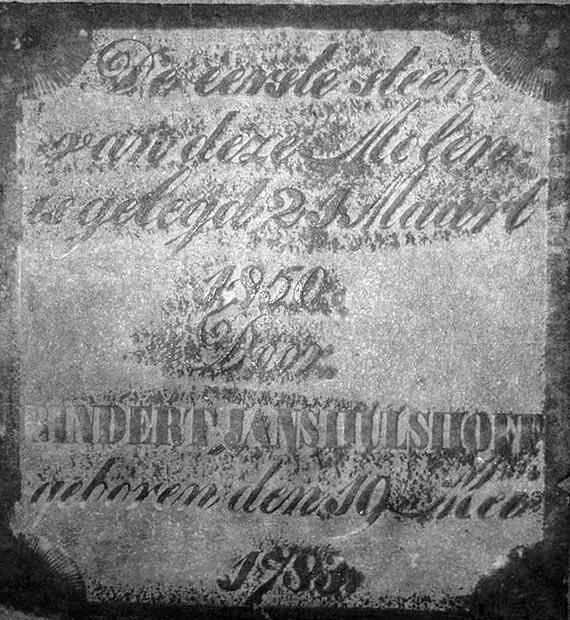 De eerste steen
van deze Molen
is gelegd 21 Maart
1850
Door
RINDERT JANS HULSHOFF
geboren den 19
1783